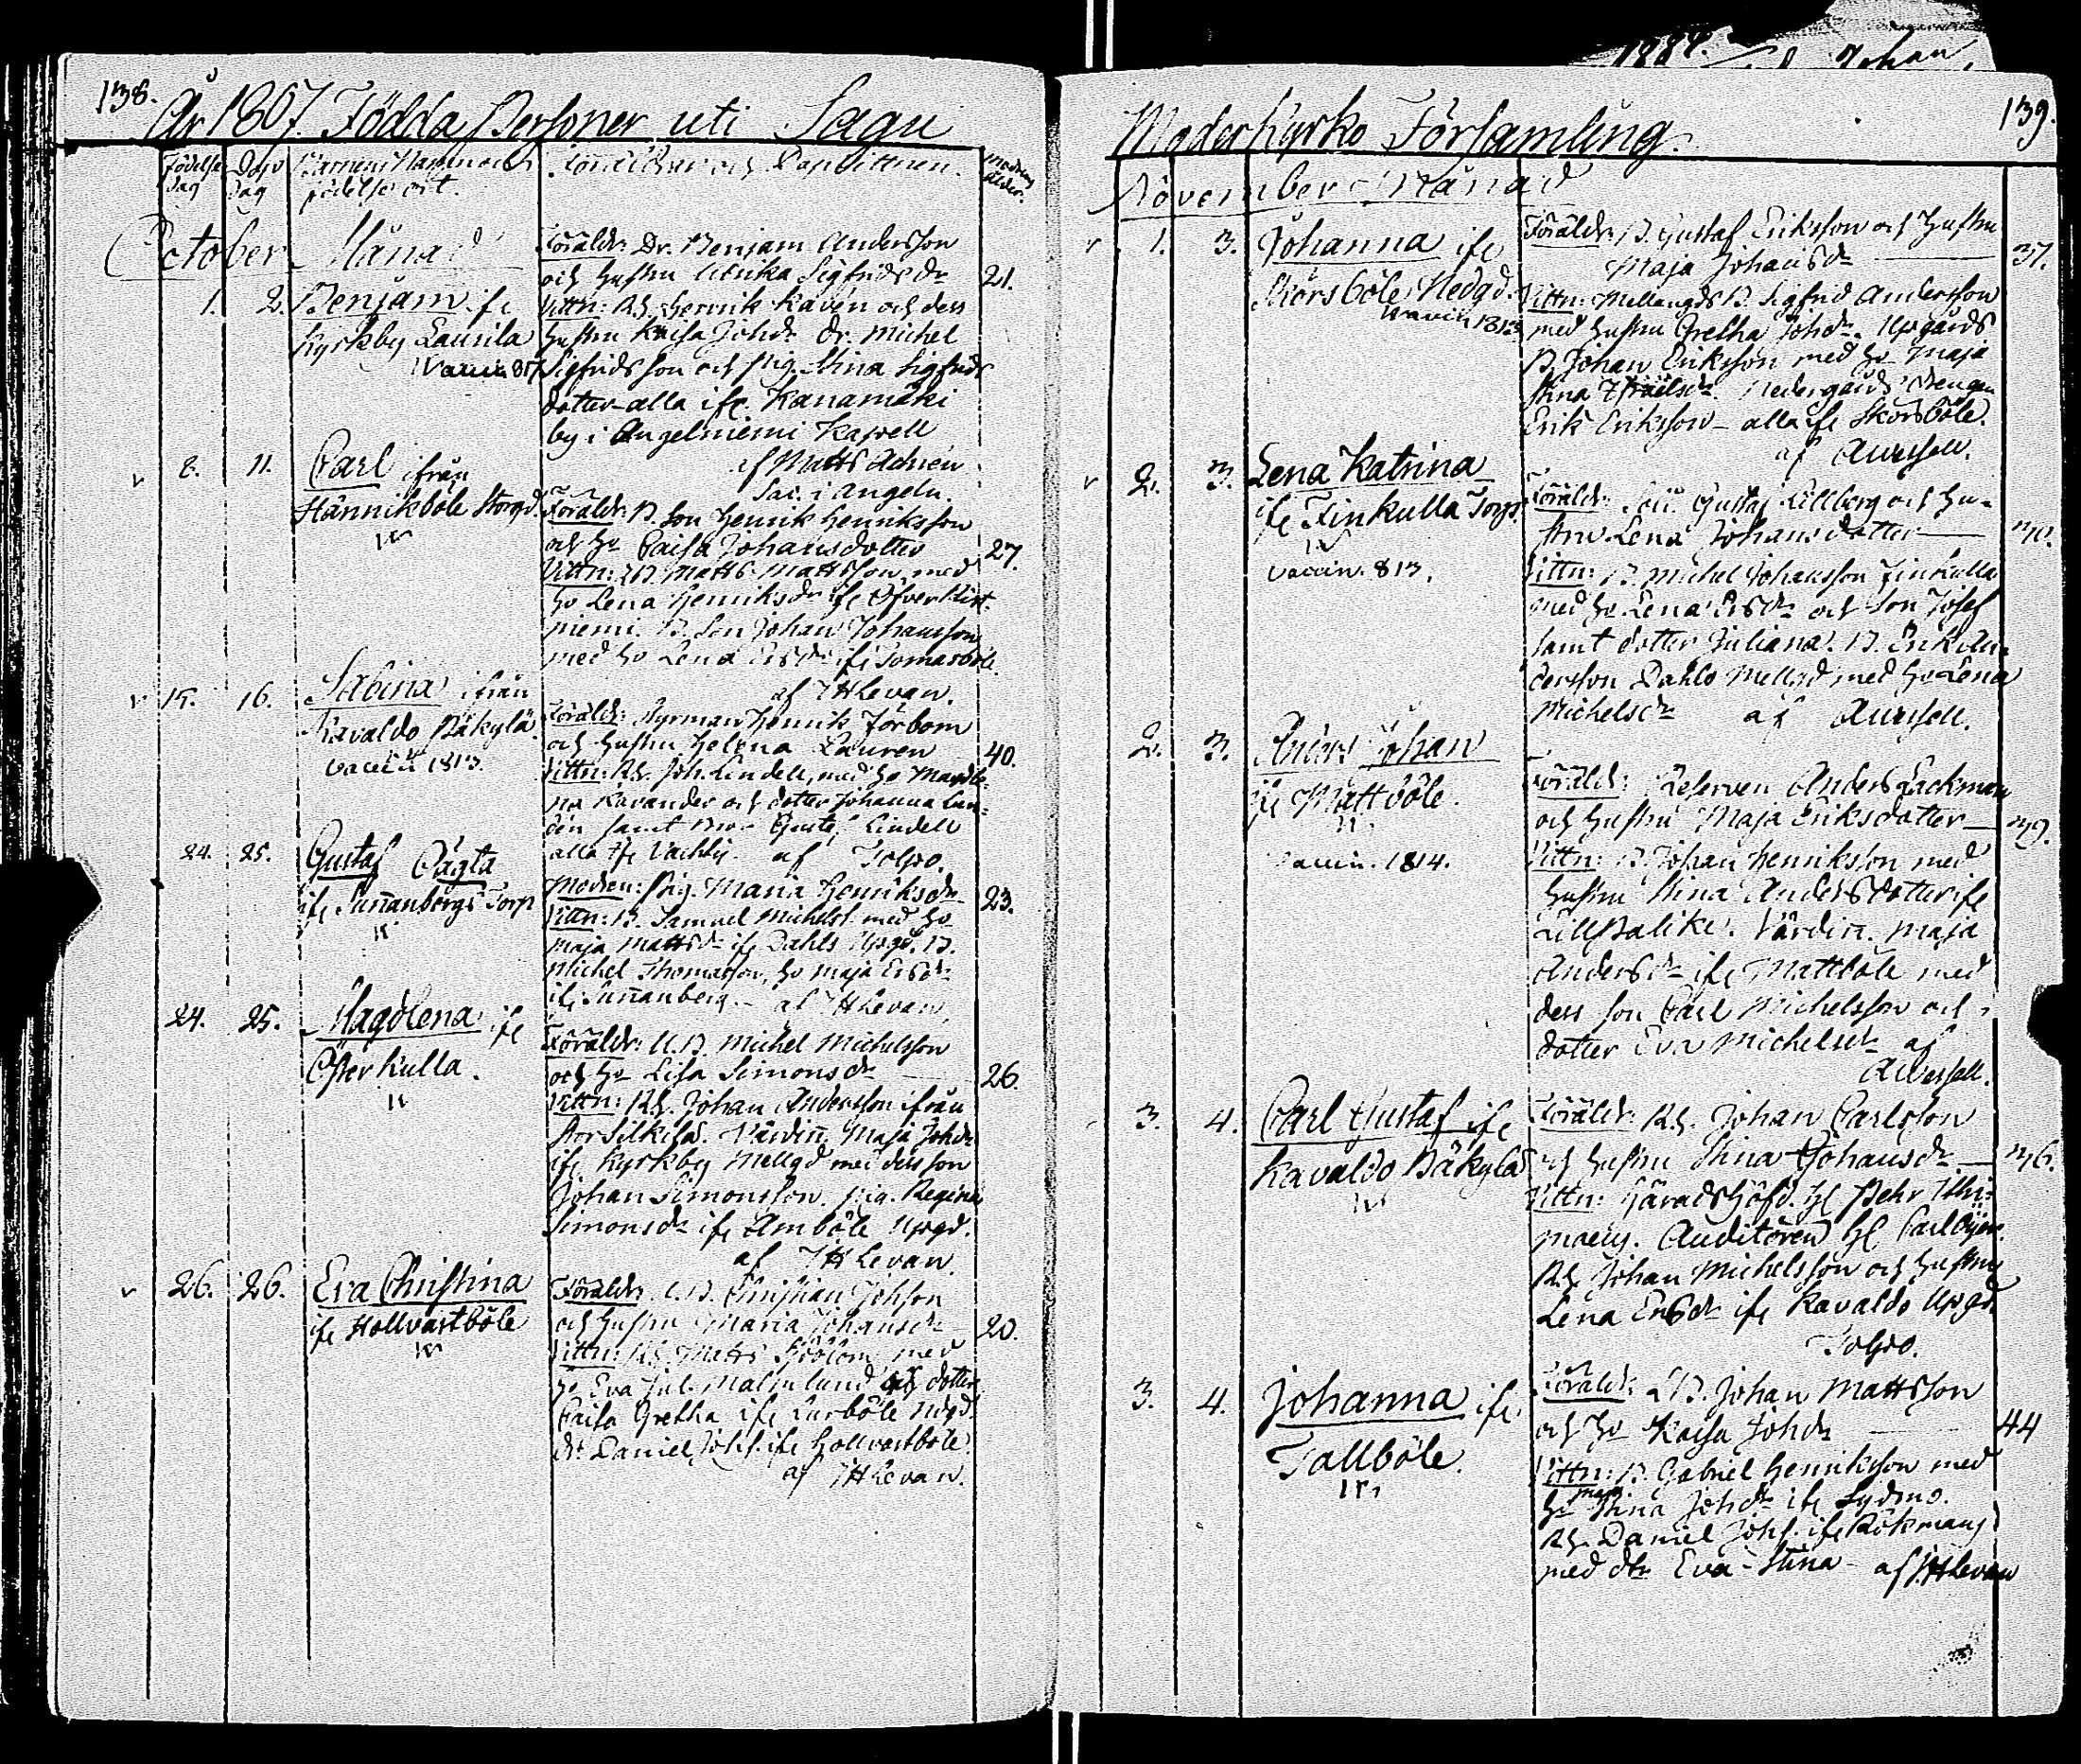 138.
År 1807. Födda Personer uti Sagu
Födelse Dag
Döps Dag
Barnens Namn och födelse ort.
Föräldrar och Dopvittnen.
Modrens ålder.
October Månad
1. 2. Benjam ifr
Kyrkby Laurila
Vaccin 807
Föräldr: Dr. Benjam Andersson
och hustru Ulrika Sigfrids dr 21.
Vittn: Rs. Henrik Kaven och dess
hustru Kaisa Johdr Dr. Michel
Sigfridsson och pig. Stina Sigfrids
dotter alla ifr. Kanamäki
by i Angelniemi Kapell
af Matts Adrien
Sac. i Angeln.
v 8. 11. Carl ifrån
Hännikböle Storgd.
Föräldr: B. Son Henrik Henriksson
och ho Caisa Johansdotter 27.
Vittn: B. Matts Mattsson med
ho Lena Henriksdr ifr Öfverkirk-
niemi. B. Son Johan Johansson
med ho Lena Ersdr ifr Tomasböle
af JHLevan.
v 15. 16. Sabina ifrån
Kavaldo Bäkylä.
vaccin 1813.
Föräldr: Styrman Henrik Förbom
och hustru Helena Lauren 40.
Vittn: Rs. Joh. Lindell, med ho Magdale-
na Kavander och dotter Johanna Lin-
den samt Gustaf Lindell
alla ifr af Tolpo.
24. 25. Gustaf Oägta
ifr Sunnanbergs Torp
Modren: Pig. Maria Henriksdr 23.
Vittn: B. Samuel Michelss. med ho
Maja Mattsdr ifr Dahls Upgd. B.
Michel Thomasson, ho Maja Ersdr
ifr Sunnanberg. af JHLevan.
24. 25. Magdlena ifr
Österkulla.
Föräldr: U.B. Michel Michelsson
och ho Lisa Simonsdr 26.
Vittn: Rs. Johan Andersson ifrån
Storsilkilä. Värdinn. Maja Johdr
ifr Kyrkby Mellgd med dess son
Johan Simonsson. pig. Regina
Simonsdr ifr Amböle Upgd.
af JHLevan.
v 26. 26. Eva Christina
ifr Hollvastböle
Föräldr: U.B. Christian Johsson
och hustru Maria Johansdr 20.
Vittn: Rs. Matts Sjöblom med
ho Eva Jul. Malmlund och dotter
Caisa Gretha ifr Lurböle Ndgd.
dr. Daniel Johs. ifr Hollvastböle.
af JHLevan.
139.
Moderkyrko Församling.
November Månad
v 1. 3. Johanna ifr
Skorsböle Nedgd.
Vaccin 1813
Föräldr: B. Gustaf Eriksson och hustru
Maja Johansdr 37.
Vittn: Mellangds B. Sigfrid Andersson
med hustru Gretha Johdr. Upgårds
B. Johan Eriksson med ho Maja
Stina Israelsdr. Nedergårds drengen
Erik Eriksson alla ifr Skorsböle.
af Avessell.
v 2. 3. Lena Katrina
ifr Finkulla Torp.
Vaccin. 813.
Föräldr: Gustaf Lillberg och hu-
stru Lena Johansdotter 40.
Vittn: B. Michel Johansson Finkulla
med ho Lena Ersdr och son Josef
samt dotter Juliana. B. Erik An-
dersson Dahls Mellgd med ho Lena
Michelsdr af Avessell.
2. 3. Anders Johan
ifr Mattböle.
Vaccin. 1814.
Föräldr: Reserven Anders Lackman
och hustru Maja Eriksdotter 39.
Vittn: B. Johan Henriksson med
hustru Stina Andersdotter ifr
Lillpalike. Värdin. Maja
Andersdr ifr Mattböle med
dess son Carl Michelsson och
dotter Eva Michelsdr af
Avessell.
3. 4. Carl Gustaf ifr
Kavaldo Bäkylä
Föräldr: Rs. Johan Carlsson
och hustru Stina Johansdr 36.
Vittn: Häradshöfd. H. Pehr
Auditören H. Carl
Rs. Johan Michelsson och hustru
Lena Ersdr ifr Kavaldo Upgd.
Tolpo.
3. 4. Johanna ifr
Tallböle.
Föräldr: L.B. Johan Mattsson
och ho Kaisa Johdr 44
Vittn: B. Gabriel Henriksson med
ho Maja Stina Johdr ifr Sydmo.
Rs. Daniel Johs. ifr Rökmans
med dtr Eva Stina af JHLevan
1884.
Johan